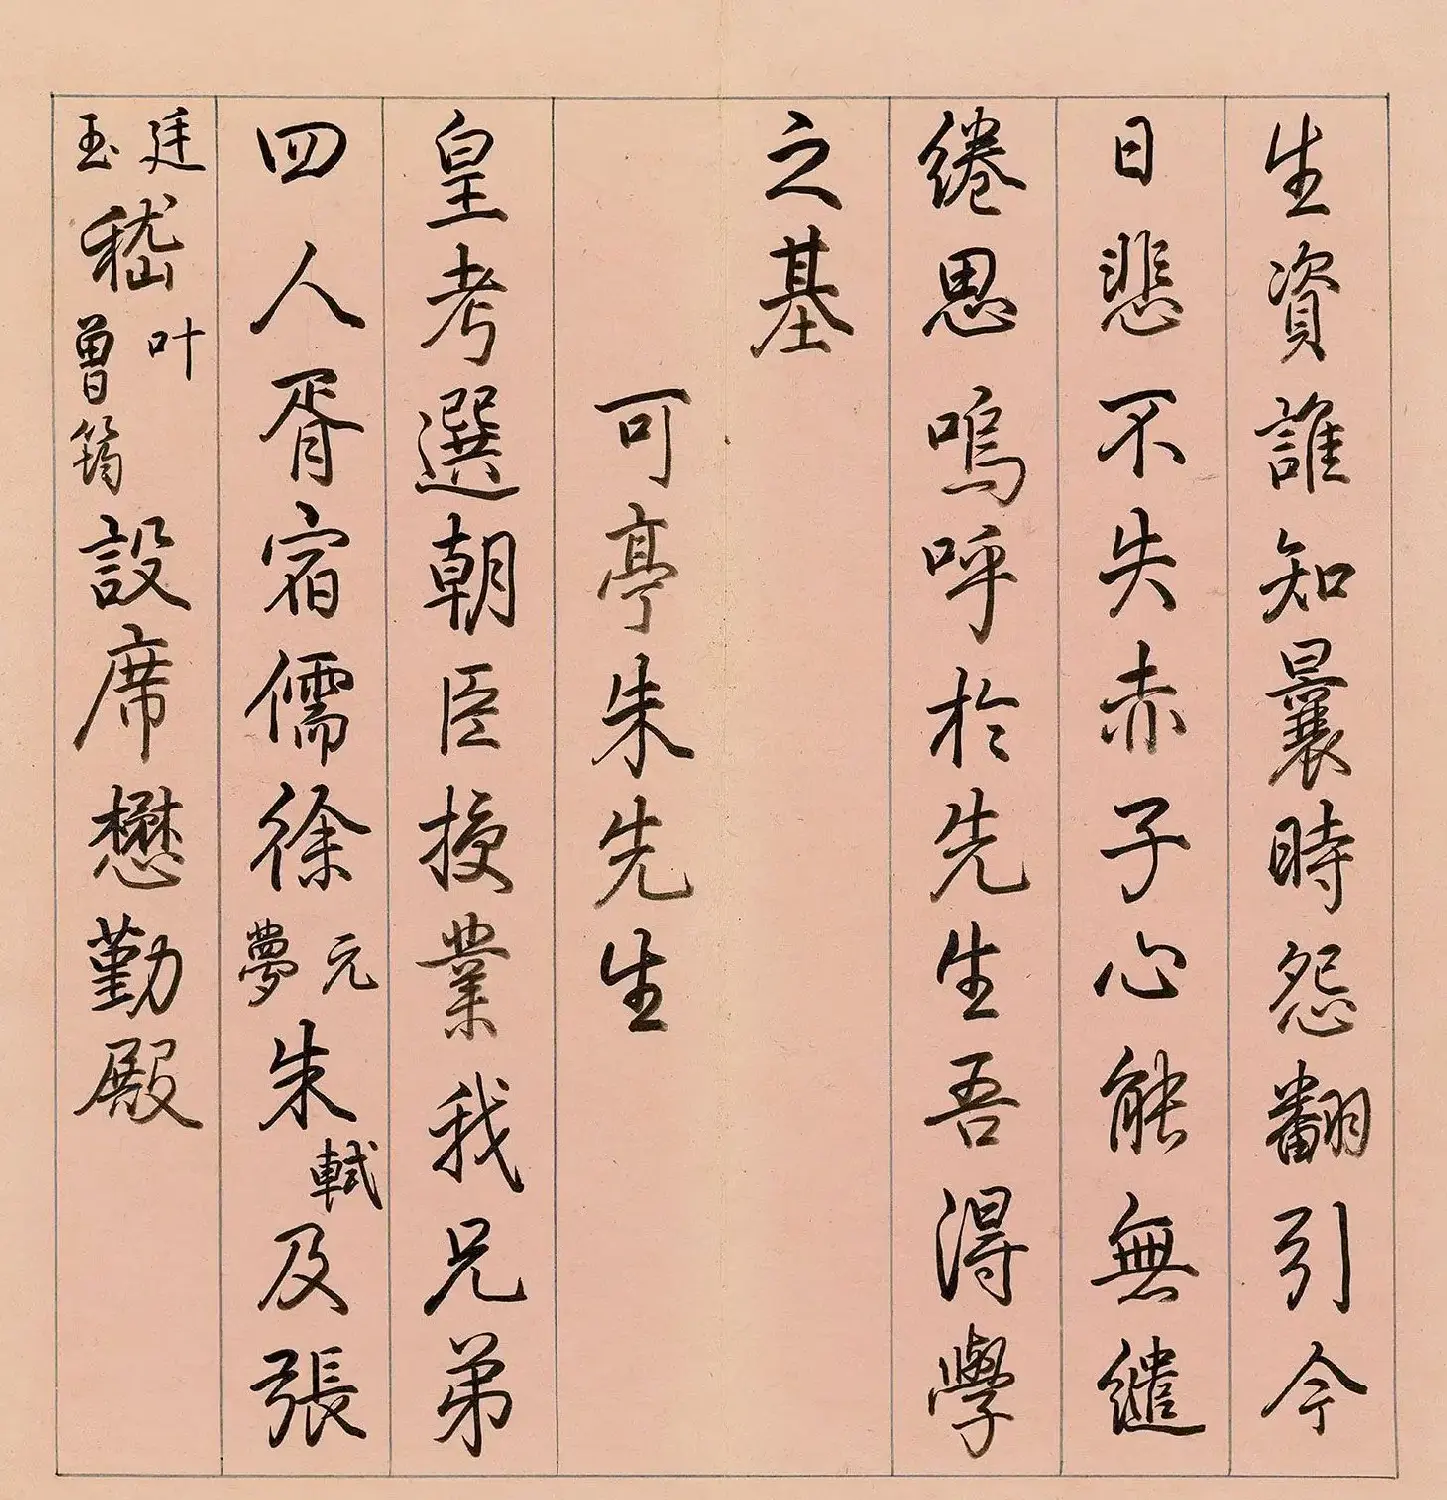 生資誰知曩時怨翻引今
日悲不失赤子心能無繾
綣思嗚呼於先生吾得學
之基
可亭朱先生
皇考選朝臣授業我兄弟
四人胥宿儒徐元夢朱軾及張
廷玉嵇叶曾筠設席懋勤殿